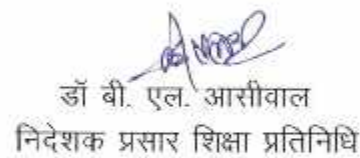 डॉ बी. एल. आसीवाल
निदेशक प्रसार शिक्षा प्रतिनिधि